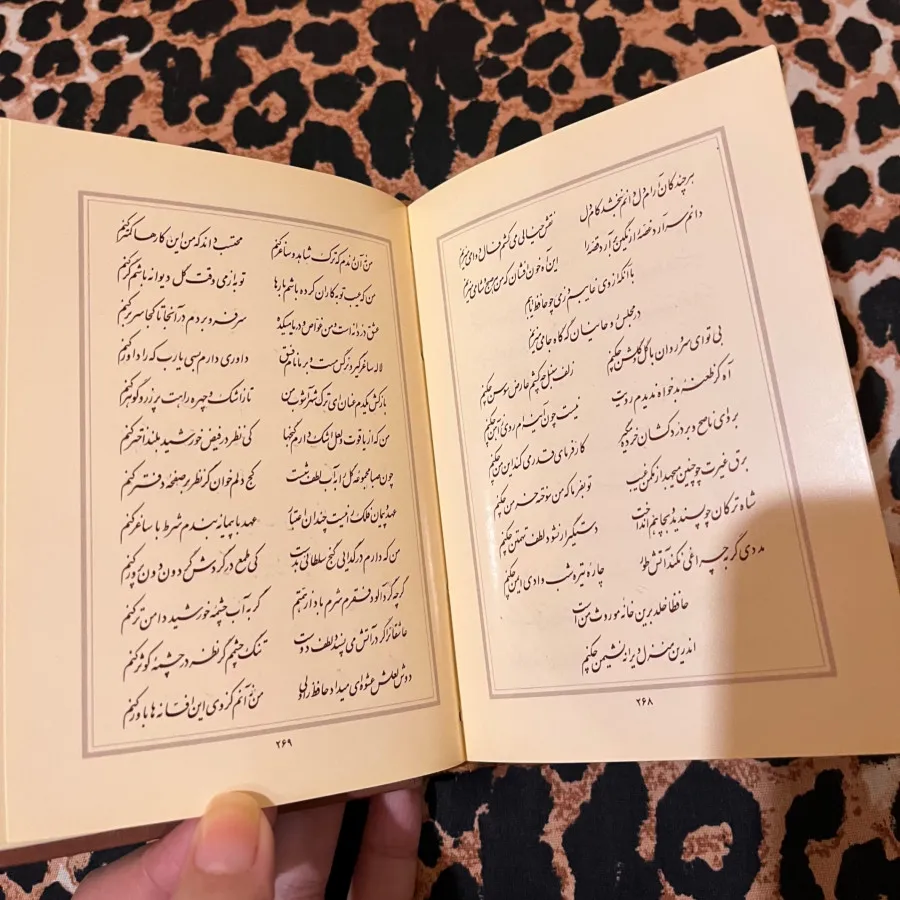 هر چند کان آرام دل دانم نبخشد کام دل نقش خیالی می کشم فال دوامی میزنم
دانم سر آرد غصه را رنگین برآرد قصه را این آه خون افشان که من هر صبح و شامی میزنم
با آنکه از وی غایبم وز می چو حافظ تایبم
در مجلس روحانیان گه گاه جامی میزنم
بی تو ای سرو روان با گل و گلشن چکنم زلف سنبل چکشم عارض سوسن چکنم
آه کز طعنه بدخواه ندیدم رویت نیست چون آینه ام روی ز آهن چکنم
برو ای ناصح و بر دردکشان خرده مگیر کارفرمای قدر می کند این من چکنم
برق غیرت چو چنین میجهد از مکمن غیب تو بفرما که من سوخته خرمن چکنم
شاه ترکان چو پسندید و بچاهم انداخت دستگیر ار نشود لطف تهمتن چکنم
مددی گر به چراغی نکند آتش طور چاره تیره شب وادی ایمن چکنم
حافظا خلد برین خانه موروث من است
اندرین منزل ویرانه نشیمن چکنم
۲۶۸
من نه آن رندم که ترک شاهد و ساغر کنم محتسب داند که من این کارها کمتر کنم
من که عیب توبه کاران کرده باشم بارها توبه از می وقت گل دیوانه باشم گر کنم
عشق دردانه است و من غواص و دریا میکده سر فرو بردم در آنجا تا کجا سر بر کنم
لاله ساغر گیر و نرگس مست و بر ما نام فسق داوری دارم بسی یارب که را داور کنم
بازکش یکدم عنان ای ترک شهرآشوب من تا ز اشک و چهره راهت پر زر و گوهر کنم
من که از یاقوت و لعل اشک دارم گنجها کی نظر در فیض خورشید بلند اختر کنم
چون صبا مجموعه گل را به آب لطف شست کج دلم خوان گر نظر بر صفحه دفتر کنم
عهد و پیمان فلک را نیست چندان اعتبار عهد با پیمانه بندم شرط با ساغر کنم
من که دارم در گدایی گنج سلطانی بدست کی طمع در گردش گردون دون پرور کنم
گرچه گرد آلود فقرم شرم باد از همتم گر به آب چشمه خورشید دامن تر کنم
عاشقان را گر در آتش می پسندد لطف دوست تنگ چشمم گر نظر در چشمه کوثر کنم
دوش لعلش عشوه ای میداد حافظ را ولی من نه آنم کز وی این افسانه ها باور کنم
۲۶۹